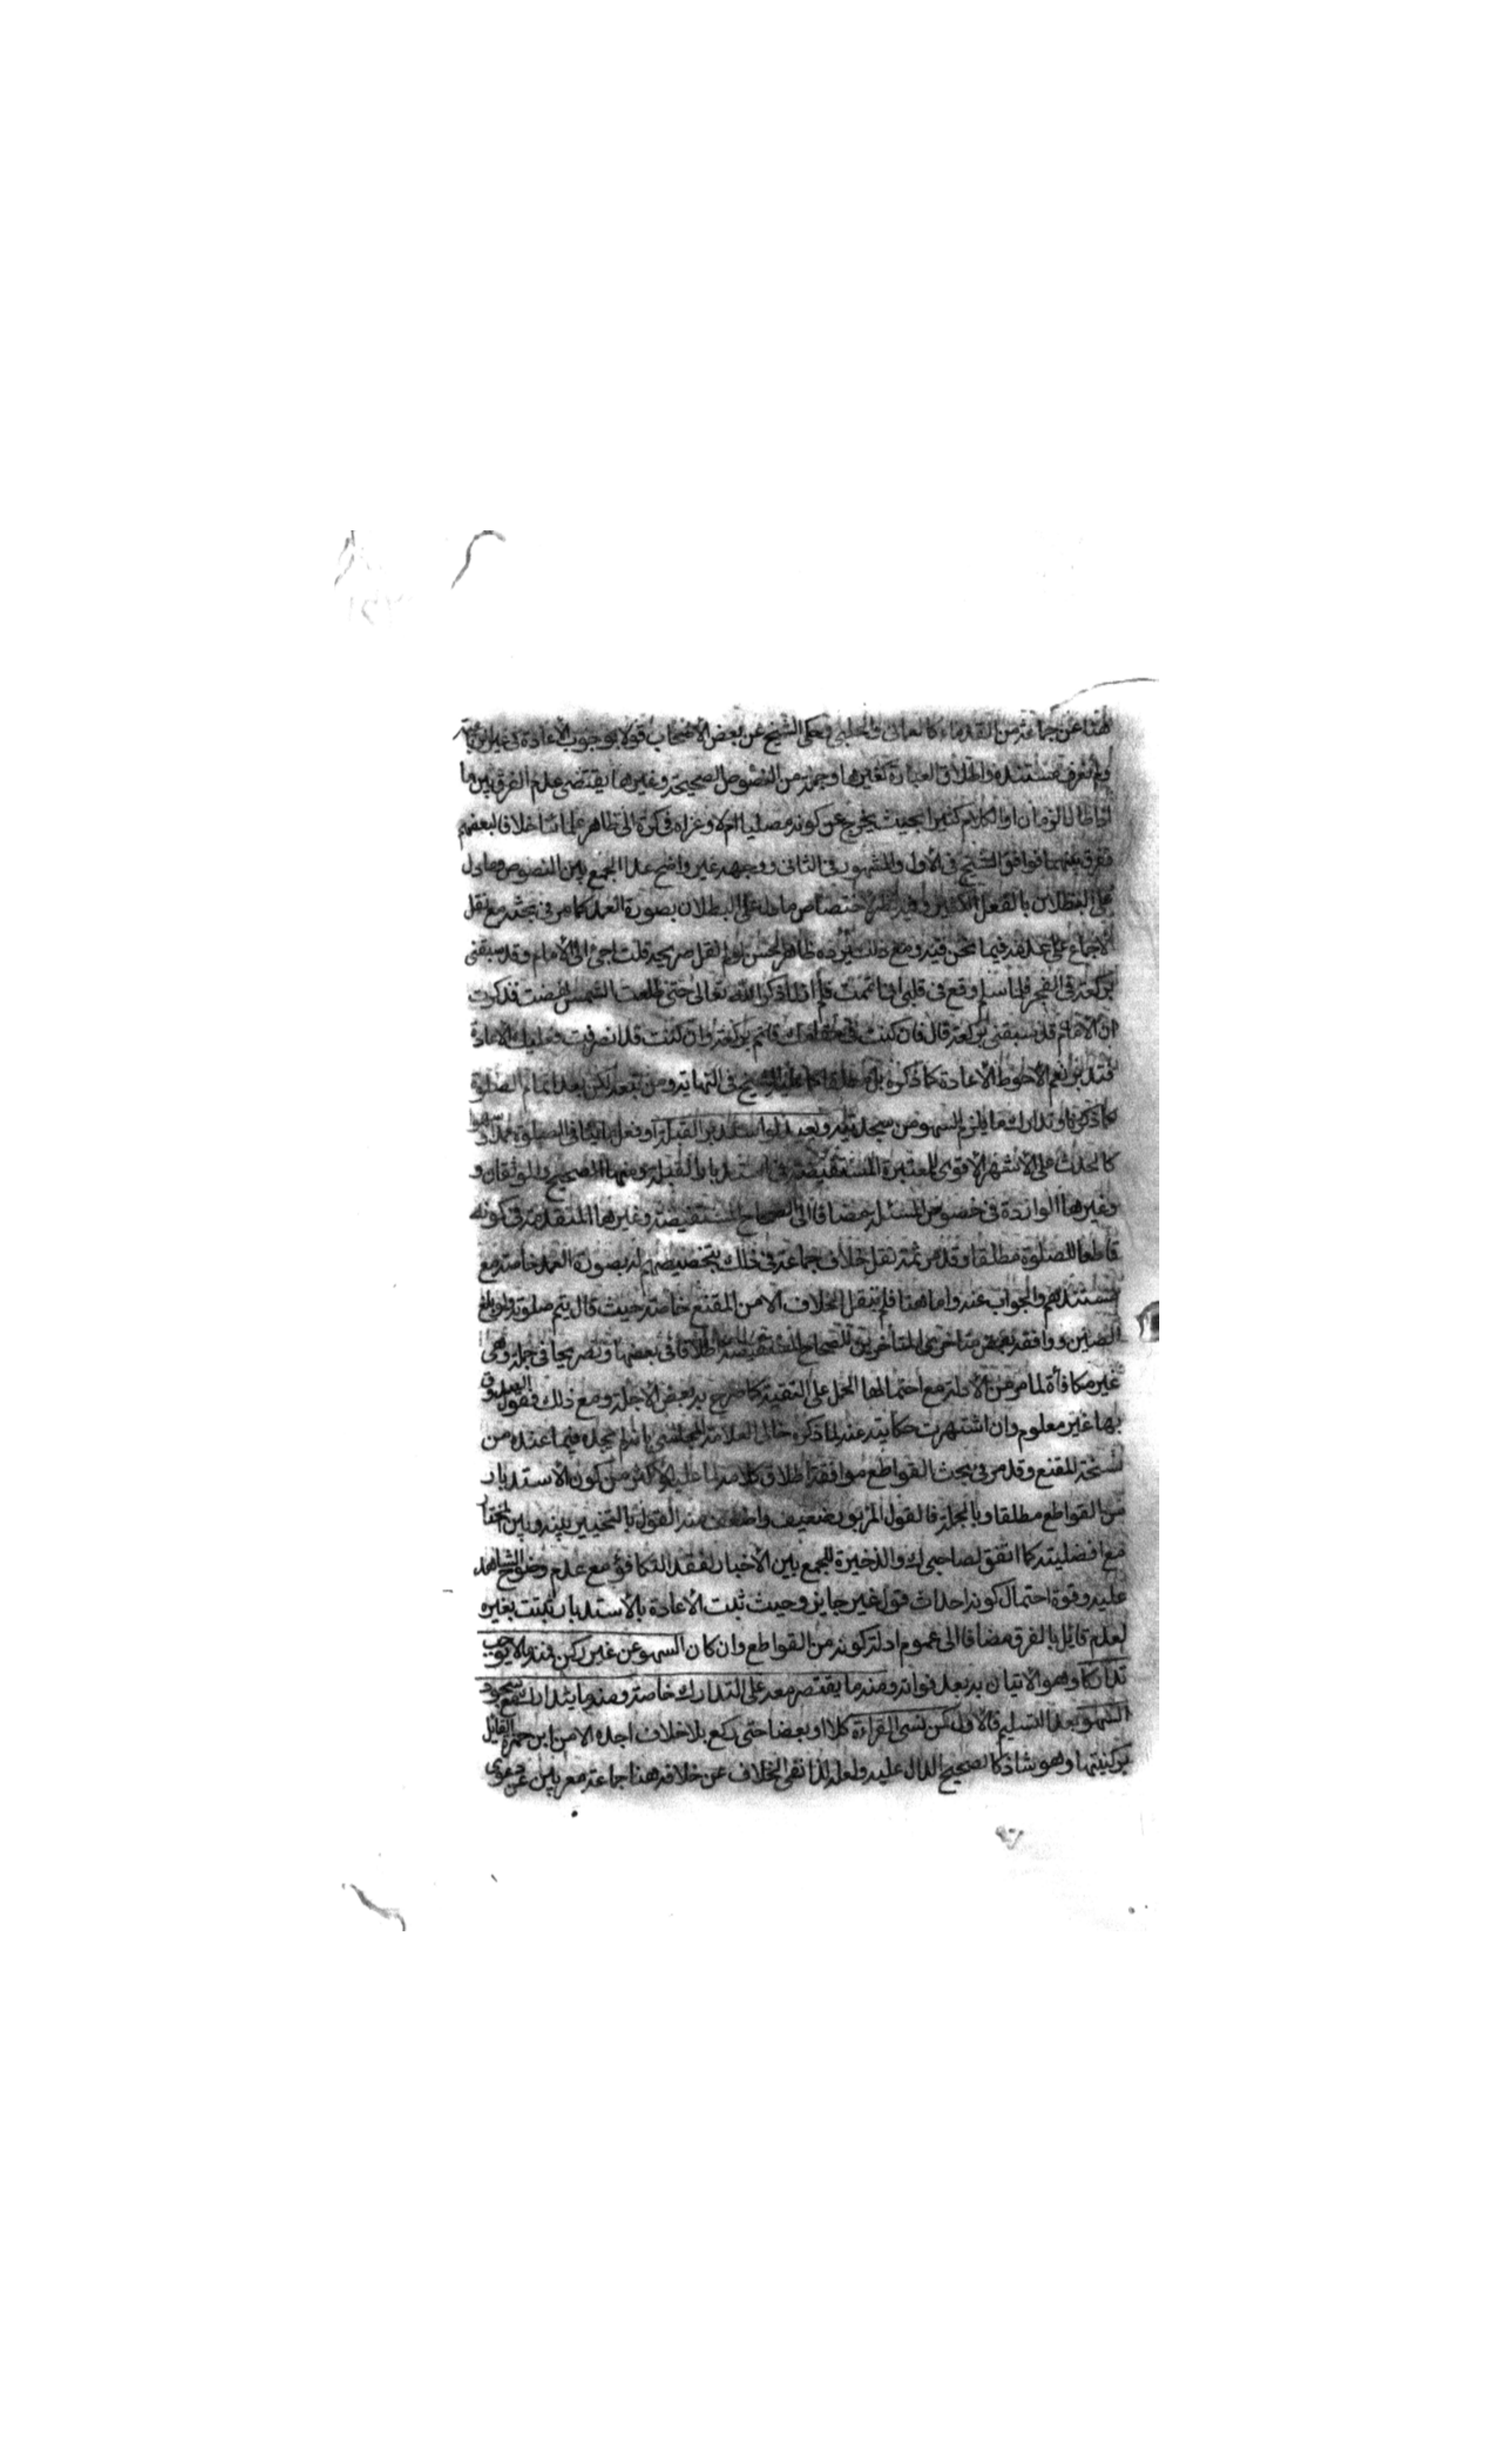 هنا عن جماعة من القدماء كالعماني والحلبي وحكى الشيخ عن بعض الأصحاب قولا بوجوب الأعادة في غير الرباعية
ولم نعرف مستنده واطلاق العبارة كغيرها وجملة من النصوص الصحيحة وغيرها يقتضى عدم الفرق بين ما
اذا طال الزمان او الكلام كثيرا بحيث يخرج عن كونه مصليا ام لا وعزاه في كرة الى ظاهر علمائنا خلافا لبعضهم
ففرق بينهما فوافق الشيخ في الأول والمشهور في الثاني ووجهه غير واضح عدا الجمع بين النصوص وما دل
على البطلان بالفعل الكثير وفيه نظر لاختصاص ما دل على البطلان بصورة العمد كما مر في بحثه مع نقل
الأجماع على عدمه فيما نحن فيه ومع ذلك يرده ظاهر الحسن او القل صريحه قلت اجئ الى الأمام وقد سبقني
بركعة في الفجر فلما سلم وقع في قلبي اني اتممت فلم ازل اذكر الله تعالى حتى طلعت الشمس نهضت فذكرت
ان الأمام قد سبقني بركعة قال فان كنت في مقامك فاتم بركعة وان كنت قد انصرفت فعليك الاعادة
فتدبر نعم الأحوط الأعادة كما ذكروه بل مطلقا كما عليه الشيخ في النهاية ومن تبعه لكن بعد اتمام الصلوة
كما ذكرنا وتدارك ما يلزم السهو من سجدتيه ويعيد لو استدبر القبلة او فعل ما ينافي الصلوة عمدا وسهوا
كالحدث على الأشهر الأقوى للمعتبرة المستفيضة في استدبار القبلة ومنها الصحيح والموثقان و
وغيرها الواردة في خصوص المسئلة مضافا الى الصحاح المستفيضة وغيرها المتقدمة في كونه
قاطعا للصلوة مطلقا وقد مر ثمة نقل خلاف جماعة في ذلك بتخصيصهم له بصورة العمد خاصة مع
مستندهم والجواب عنه واما هنا فلم ينقل الخلاف الا من المقنع خاصة حيث قال يتم صلوته ولو بلغ
الصين ووافقه بعض متأخرى المتأخرين للصحاح المستفيضة اطلاقا في بعضها وتصريحا في جملة وهي
غير مكافأة لما مر من الأدلة مع احتمالها الحمل على التقية كما صرح به بعض الأجلة ومع ذلك فقول الصدوق
بها غير معلوم وان اشتهرت حكايته عنه لما ذكره خالى العلامة المجلسي بانه لم يجده فيما عنده من
نسخة المقنع وقد مر في بحث القواطع موافقة اطلاق كلامه لما عليه الأكثر من كون الأستدبار
من القواطع مطلقا وبالجملة فالقول المزبور ضعيف واضعف منه القول بالتخيير بينه وبين المختار
مع افضليته كما اتفق لصاحبى ك والذخيرة للجمع بين الأخبار لفقد التكافؤ مع عدم وضوح الشاهد
عليه وقوة احتمال كونه احداث قول غير جايز وحيث ثبتت الأعادة بالأستدبار ثبتت بغيره
لعدم قايل بالفرق مضافا الى عموم ادلة كونه من القواطع وان كان السهو عن غير ركن فمنه ما لا يوجب
تداركا وهو الاتيان به بعد فواته ومنه ما يقتصر معه على التدارك خاصة ومنه ما يتدارك مع سجود
السهو بعد التسليم فالأول كمن نسى القراءة كلا او بعضا حتى ركع بلا خلاف اجده الا من ابن حمزة القائل
بركنيتها وهو شاذ كالصحيح الدال عليه ولعله لذا نفى الخلاف عن خلافه هنا جماعة معربين عن دعوى